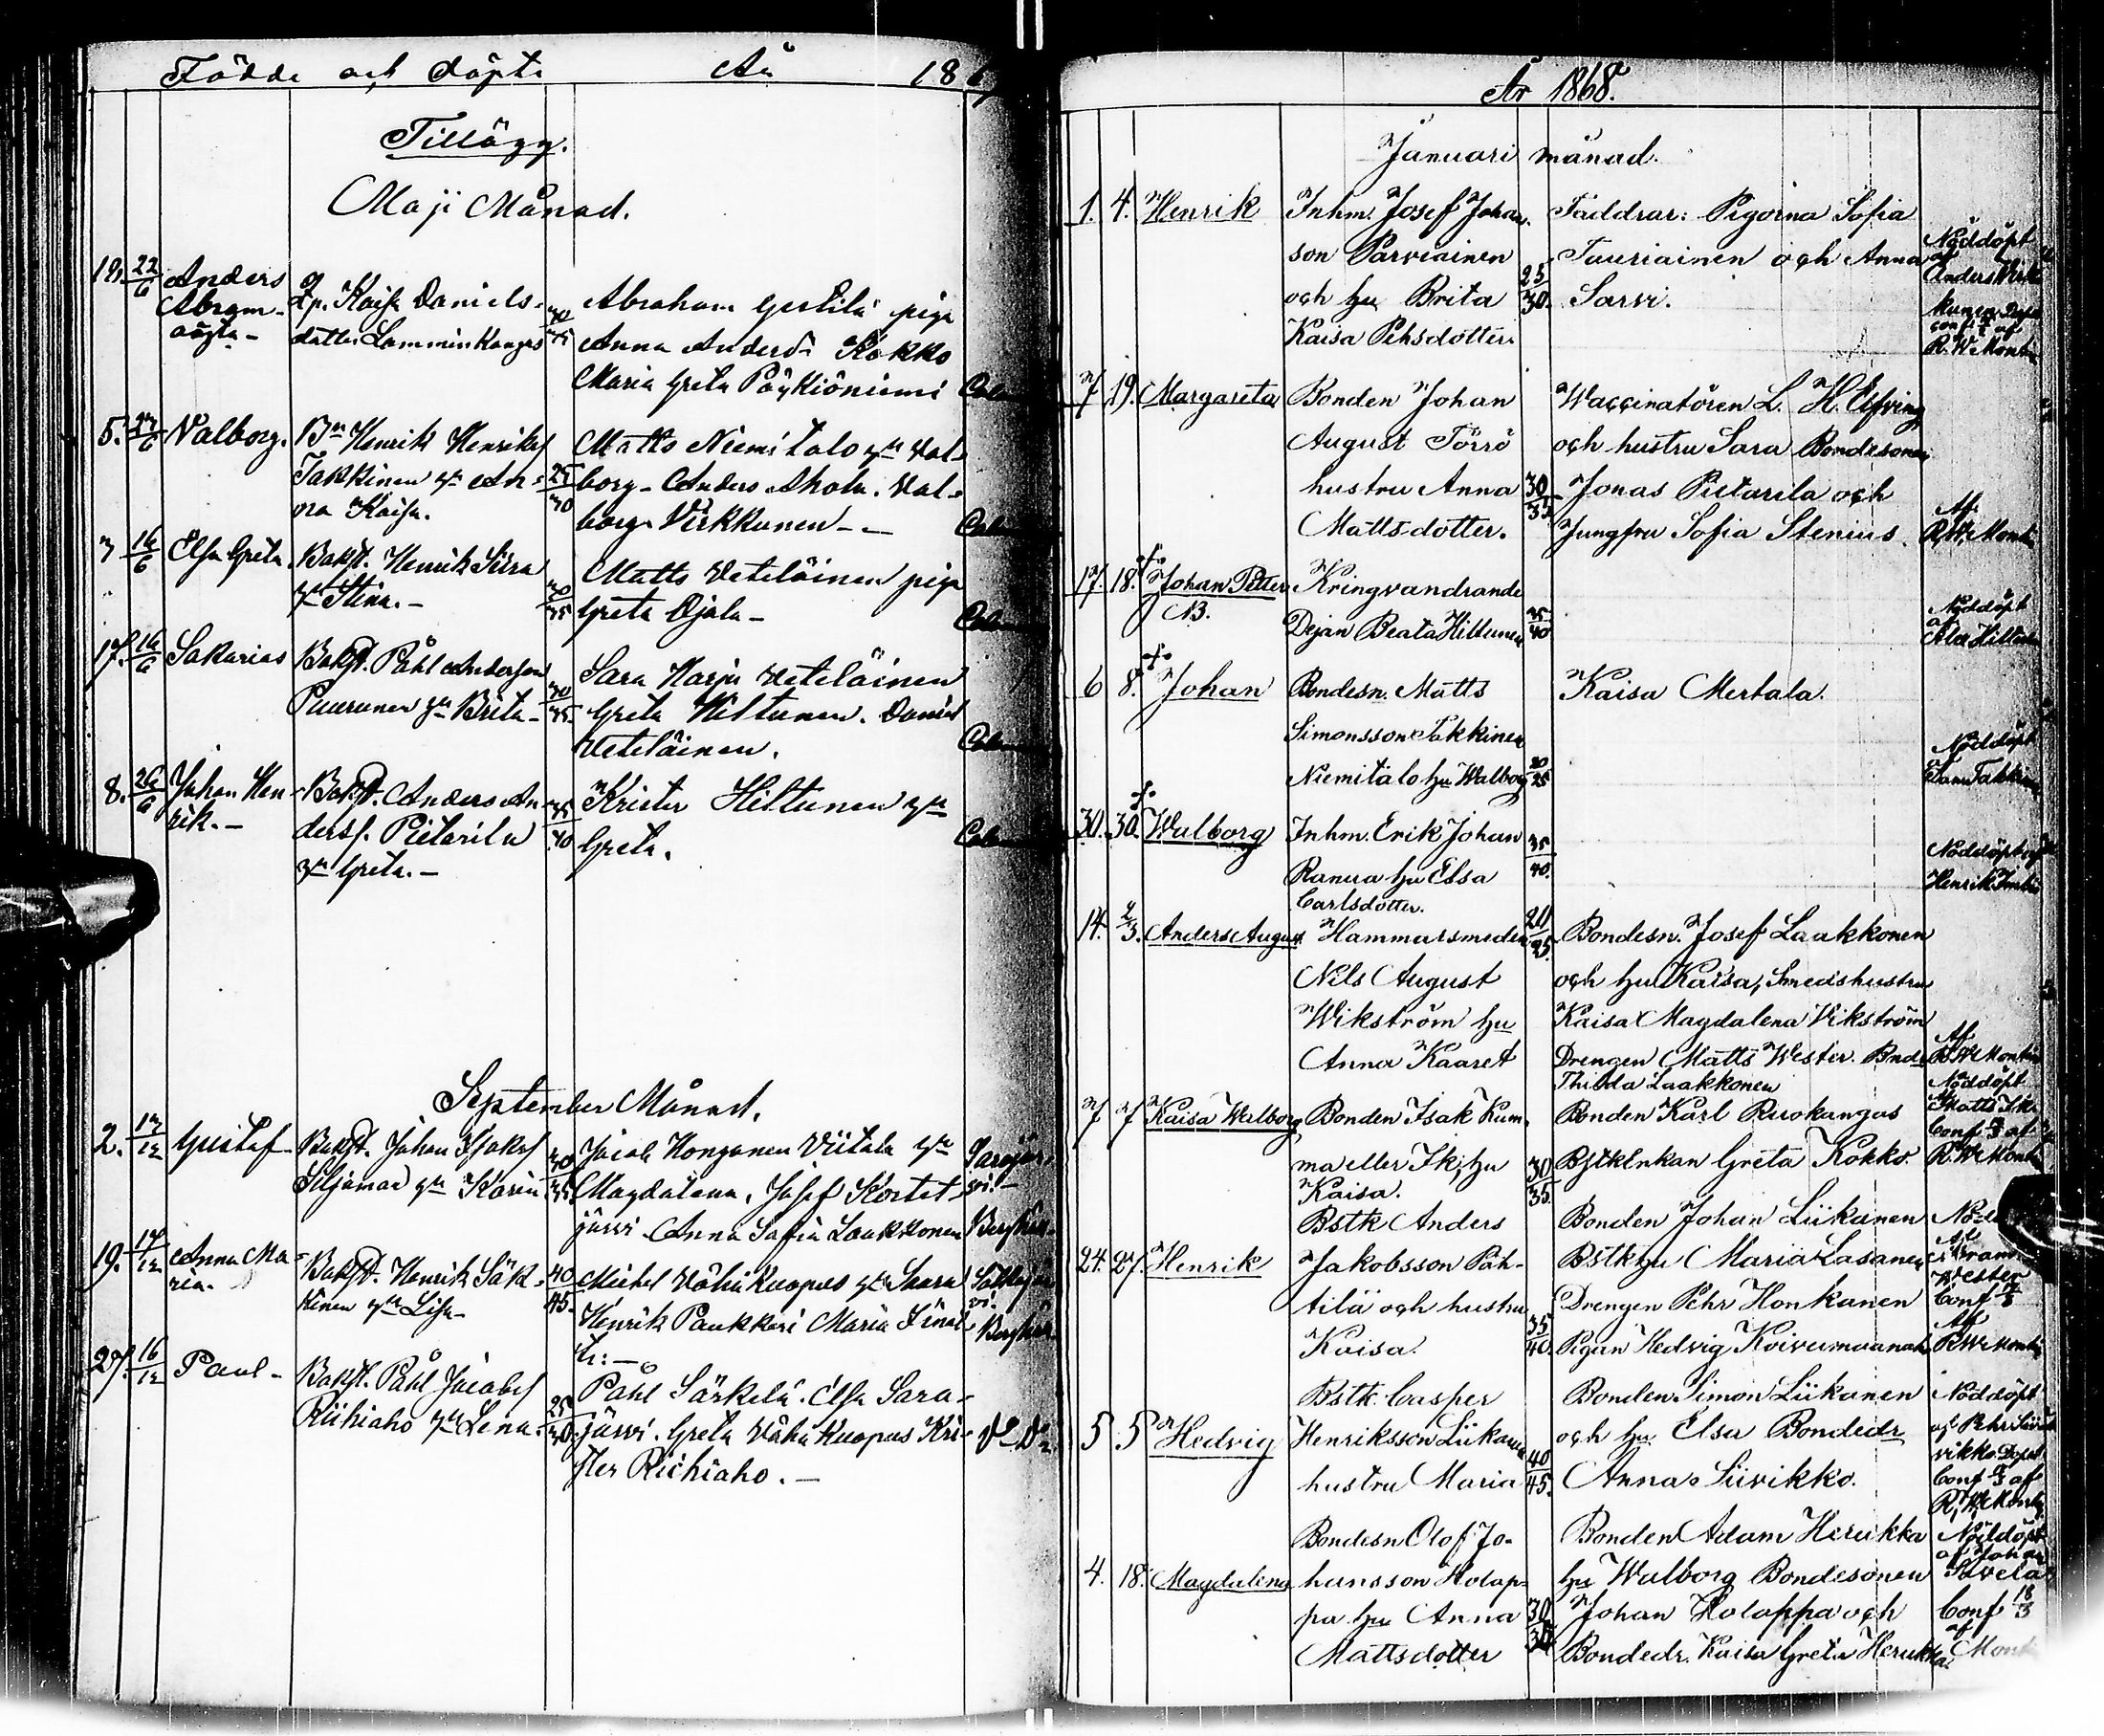 Födde och döpte År 186
Tillägg.
Maji Månad.
19. 22/6 Anders Abram oägta -
Lp. Kaisa Daniels-
dotter Lamminkangas
Abraham Yrttilä piga
Anna Andersd. Kokko
Maria Greta Pöykiöniemi
5. 27/6 Valborg.
Bn Henrik Henriks
Takkinen hu An-
na Kaisa.
25/30
Matts Niemitalo hu Val
borg - Anders Ahola. Val-
borg Virkkunen -
3 16/6 Elsa Greta
Bakst. Henrik Siira
hu Stina. -
30/35
Matts Veteläinen piga
Greta Ojala -
17. 16/6 Sakarias
Bakst. Påhl Andersson
Puurunen hu Brita -
Sara Harju Veteläinen
Greta Hiltunen. Daniel
Veteläinen.
8. 26/6 Johan Hen-
rik. -
Bakst. Anders An-
derss. Pietarila
hu Greta. -
35/40
Krister Hiltunen hu
Greta.
September Månad.
2. 17/12 Gustaf -
Bakst. Johan
hu Karin
30/35
Jacob Honganen Viitala hu
Magdalena. Josef Kortet-
järvi Anna Sofia Laakkonen
19. 17/12 Anna Ma-
ria.
Bakst. Henrik Säk-
kinen hu Lisa -
40/45
Michel Vähä Kuopus hu Saara
Henrik Paukkeri Maria
27. 16/12 Paul -
Bakst. Påhl Jacobs
Riihiaho hu Lena.
25/30
Påhl Särkelä. Elsa Sara-
järvi. Greta Vähä Kuopus Kri-
ster Riihiaho. -
År 1868.
Januari månad.
1. 4. Henrik
Inhm. Josef Johan-
son Parviainen
och hu Brita
Kaisa Pehsdotter.
25/30.
Faddrar: Pigorna Sofia
Tauriainen och Anna
Sarvi.
Nöddöpt
af
Anders Virk
kunen Dopet
conf af
R. W. Montin
7 19. Margareta
Bonden Johan
August Törrö
hustru Anna
Mattsdotter.
30/35
Waccinatören L. H. Elfving
och hustru Sara Bondesonen
Jonas Pietarila och
Jungfru Sofia Stenius.
Af.
R. W. Montin
17. 18. Johan Petter
NB.
Kringvandrande
Dejan Beata Hiltunen
35/40
Nöddöpt
af
Hiltunen
6 8. Johan
Bondesn. Matts
Simonsson Takkinen
Niemitalo hu Walborg
20/25
Kaisa Mertala.
Nöddöpt
30. 30. Walborg
Inhm. Erik Johan
Ranua hu Elsa
Carlsdotter.
35/40.
Nöddöpt af
Henrik
14. 2/3. Anders August
Hammarsmeden
Nils August
Wikström hu
Anna Kaaret
20/25.
Bondesn. Josef Laakkonen
och hu Kaisa, Smedshustru
Kaisa Magdalena Vikström
Drengen Matts Wester. Bnde
Thilda Laakkonen
Af.
R. W. Montin
7 7 Kaisa Walborg
Bonden Isak Kum-
ma eller Ik, hu
Kaisa.
30/35.
Bonden Karl Ruokangas
Bstkenkan Greta Kokko.
Nöddöpt
Af
Matts Ik.
Conf af
R. W. Montin
24. 27. Henrik
Bstk Anders
Jakobsson Päh-
tilä och hustru
Kaisa.
35/40.
Bonden Johan Liikanen
Bstkhu Maria Lasanen
Drengen Pehr Honkanen
Pigan Hedvig Koivumaanaho
Wester
Conf
Af
R. W. Montin
5 5 Hedvig
Bstk. Casper
Henriksson Liikanen
hustru Maria
40/45.
Bonden Simon Liikanen
och hu Elsa Bondedr
Anna Siivikko.
Nöddöpt
af Pehr Siivikko
Dopet
Conf af
R. W. Montin
4. 18. Magdalena
Bondesn Olof Jo-
hansson Holap-
pa hu Anna
Mattsdotter
30/35
Bonden Adam Herukka
hu Walborg Bondesonen
Johan Holappa och
Bondedr. Kaisa Greta Herukka
Nöddöpt
af Johan
Conf 18/3
af
Mont